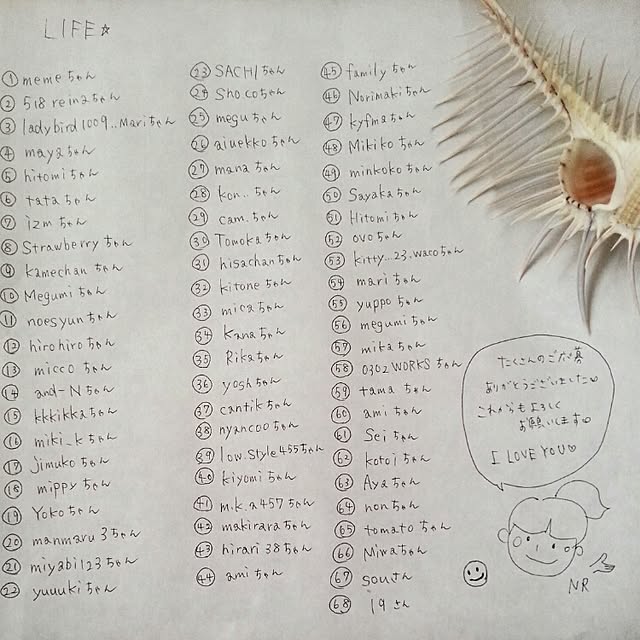 LIFE☆
① memeちゃん
② 518reinaちゃん
③ ladybird1009..Mariちゃん
④ mayaちゃん
⑤ hitomiちゃん
⑥ tataちゃん
⑦ izmちゃん
⑧ Strawberryちゃん
⑨ kamechanちゃん
⑩ Megumiちゃん
⑪ noesyunちゃん
⑫ hirohiroちゃん
⑬ miccoちゃん
⑭ and-Nちゃん
⑮ kkkikkaちゃん
⑯ miki_kちゃん
⑰ jimukoちゃん
⑱ mippyちゃん
⑲ Yokoちゃん
⑳ manmaru3ちゃん
㉑ miyabi123ちゃん
㉒ yuuukiちゃん
㉓ SACHIちゃん
㉔ Shocoちゃん
㉕ meguちゃん
㉖ aiuekkoちゃん
㉗ manaちゃん
㉘ kon..ちゃん
㉙ cam.ちゃん
㉚ Tomokaちゃん
㉛ hisachanちゃん
㉜ kitoneちゃん
㉝ micaちゃん
㉞ Kanaちゃん
㉟ Rikaちゃん
㊱ yoshちゃん
㊲ cantikちゃん
㊳ nyancooちゃん
㊴ low.style455ちゃん
㊵ kiyomiちゃん
㊶ m.k.a457ちゃん
㊷ makiraraちゃん
㊸ hirari38ちゃん
㊹ amiちゃん
㊺ familyちゃん
㊻ Norimakiちゃん
㊼ kyfmaちゃん
㊽ Mikikoちゃん
㊾ minkokoちゃん
㊿ Sayakaちゃん
51 Hitomiちゃん
52 ovoちゃん
53 kitty...23.wacoちゃん
54 mariちゃん
55 yuppoちゃん
56 megumiちゃん
57 mikaちゃん
58 0302WORKSちゃん
59 tamaちゃん
60 amiちゃん
61 Seiちゃん
62 kotoiちゃん
63 Ayaちゃん
64 nonちゃん
65 tomatoちゃん
66 Miwaちゃん
67 souさん
68 19さん
たくさんのご応募
ありがとうございました♡
これからもよろしく
お願いします♡
I LOVE YOU♡
NR